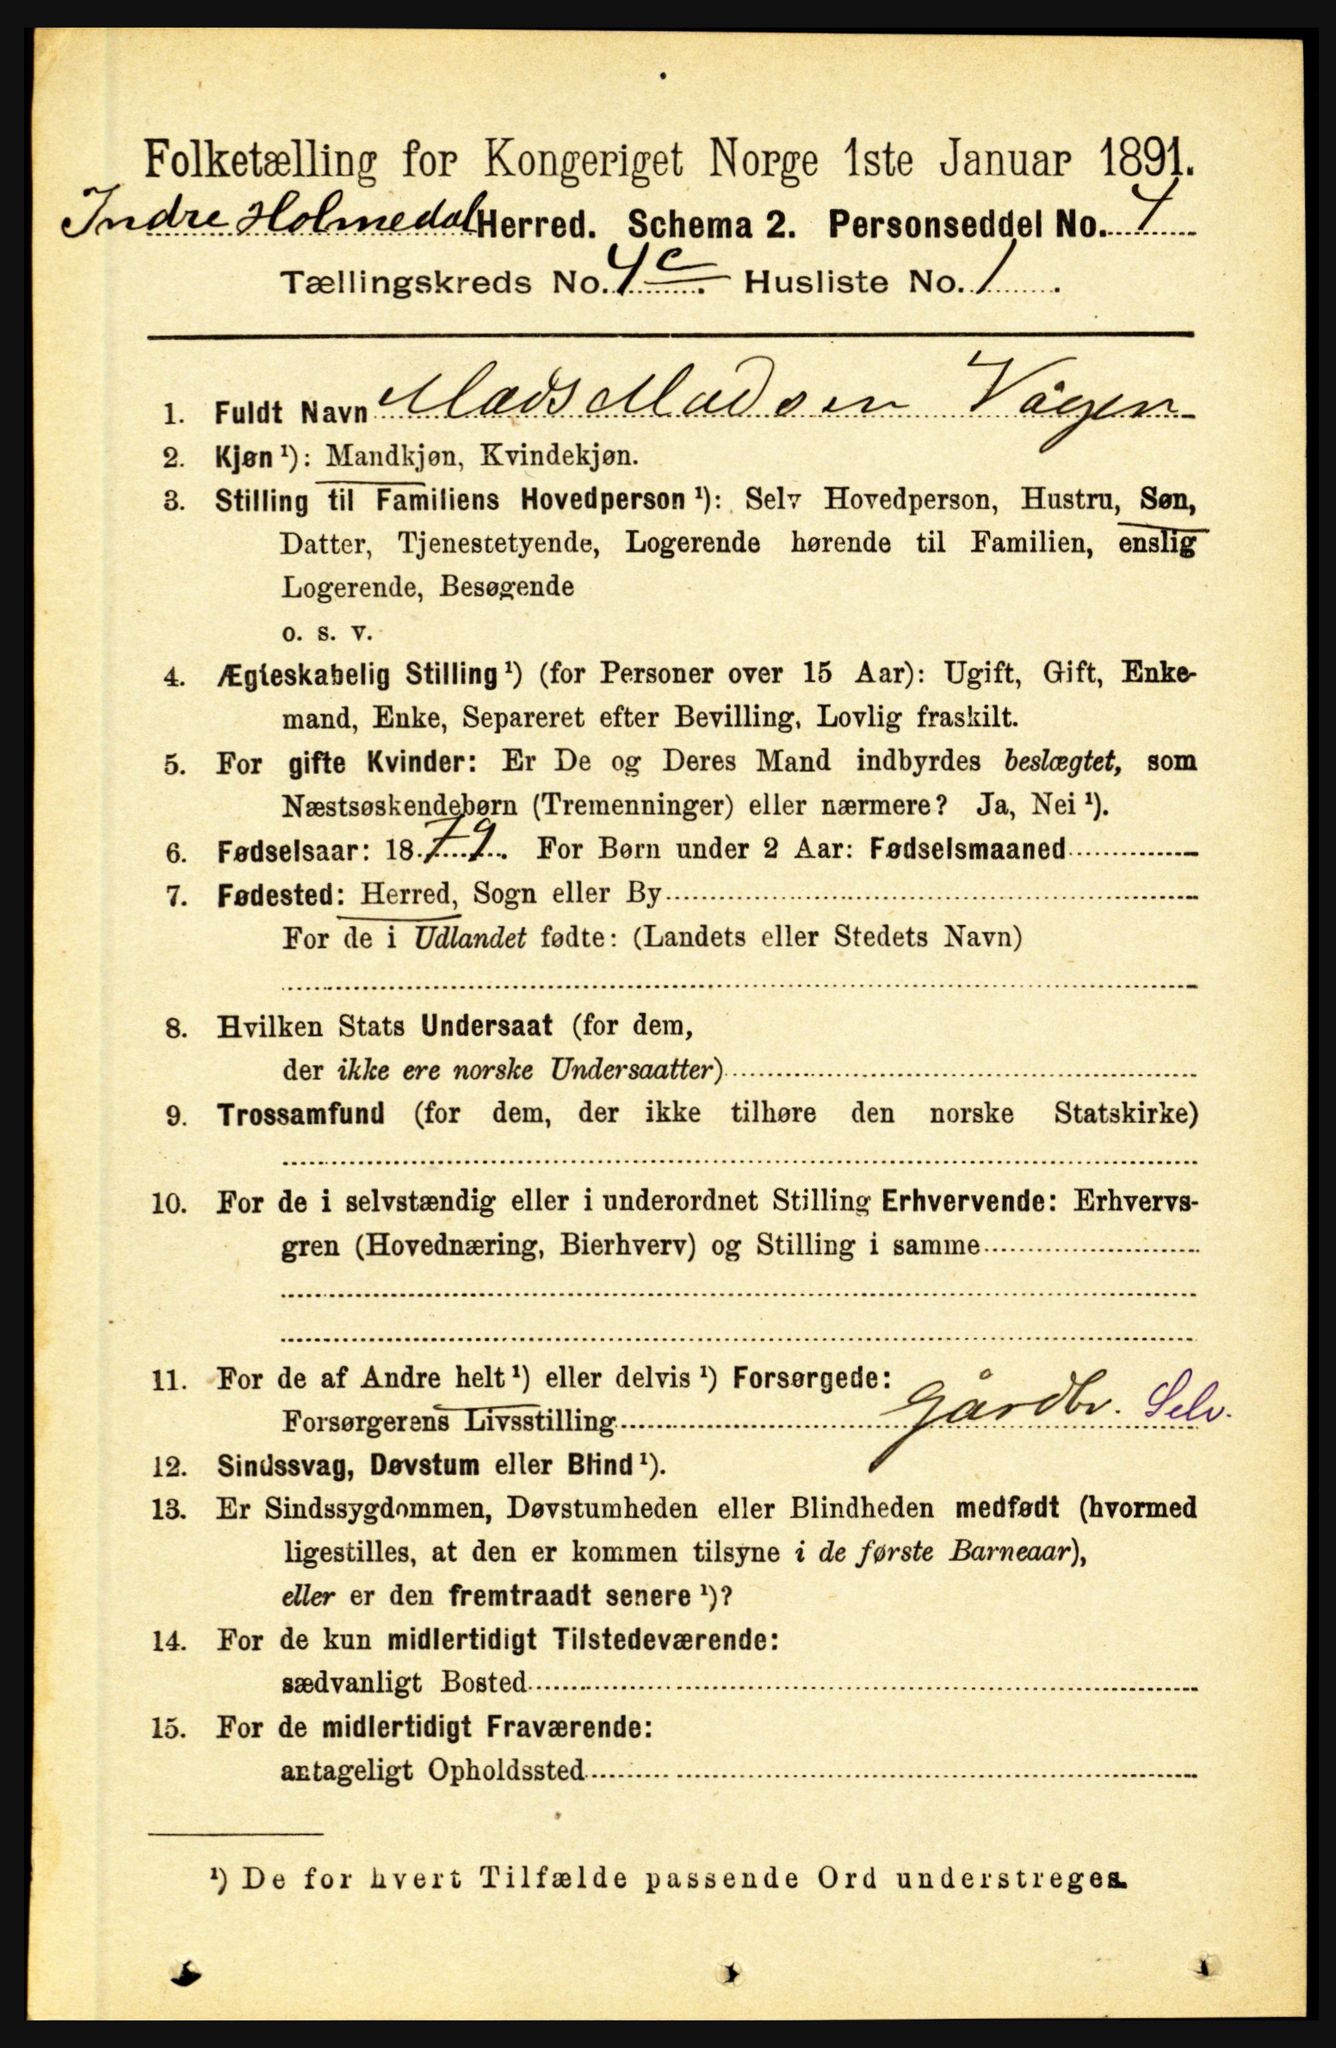 Folketælling for Kongeriget Norge 1ste Januar 1891.
Indre Holmedal Herred. Schema 2. Personseddel No. 4
Tællingskreds No. 4c. Husliste No. 1.
1. Fuldt Navn Mads Madsen Vågen
2. Kjøn¹): Mandkjøn, Kvindekjøn.
3. Stilling til Familiens Hovedperson¹): Selv Hovedperson, Hustru, Søn,
Datter, Tjenestetyende, Logerende hørende til Familien, enslig
Logerende, Besøgende
o. s. v.
4. Ægteskabelig Stilling¹) (for Personer over 15 Aar): Ugift, Gift, Enke-
mand, Enke, Separeret efter Bevilling, Lovlig fraskilt.
5. For gifte Kvinder: Er De og Deres Mand indbyrdes beslægtet, som
Næstsøskendebørn (Tremenninger) eller nærmere? Ja, Nei¹).
6. Fødselsaar: 1879. For Børn under 2 Aar: Fødselsmaaned
7. Fødested: Herred, Sogn eller By
For de i Udlandet fødte: (Landets eller Stedets Navn)
8. Hvilken Stats Undersaat (for dem,
der ikke ere norske Undersaatter)
9. Trossamfund (for dem, der ikke tilhøre den norske Statskirke)
10. For de i selvstændig eller i underordnet Stilling Erhvervende: Erhvervs-
gren (Hovednæring, Bierhverv) og Stilling i samme
11. For de af Andre helt¹) eller delvis¹) Forsørgede:
Forsørgerens Livsstilling Gårdbr. Selv.
12. Sindssvag, Døvstum eller Blind¹).
13. Er Sindssygdommen, Døvstumheden eller Blindheden medfødt (hvormed
ligestilles, at den er kommen tilsyne i de første Barneaar),
eller er den fremtraadt senere¹)?
14. For de kun midlertidigt Tilstedeværende:
sædvanligt Bosted
15. For de midlertidigt Fraværende:
antageligt Opholdssted
¹) De for hvert Tilfælde passende Ord understreges.